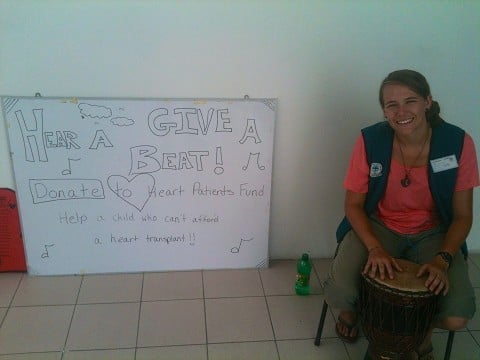 Hear A GIVE A
BEAT!
Donate to Heart Patients Fund
Help a child who can't afford
a heart transplant!!